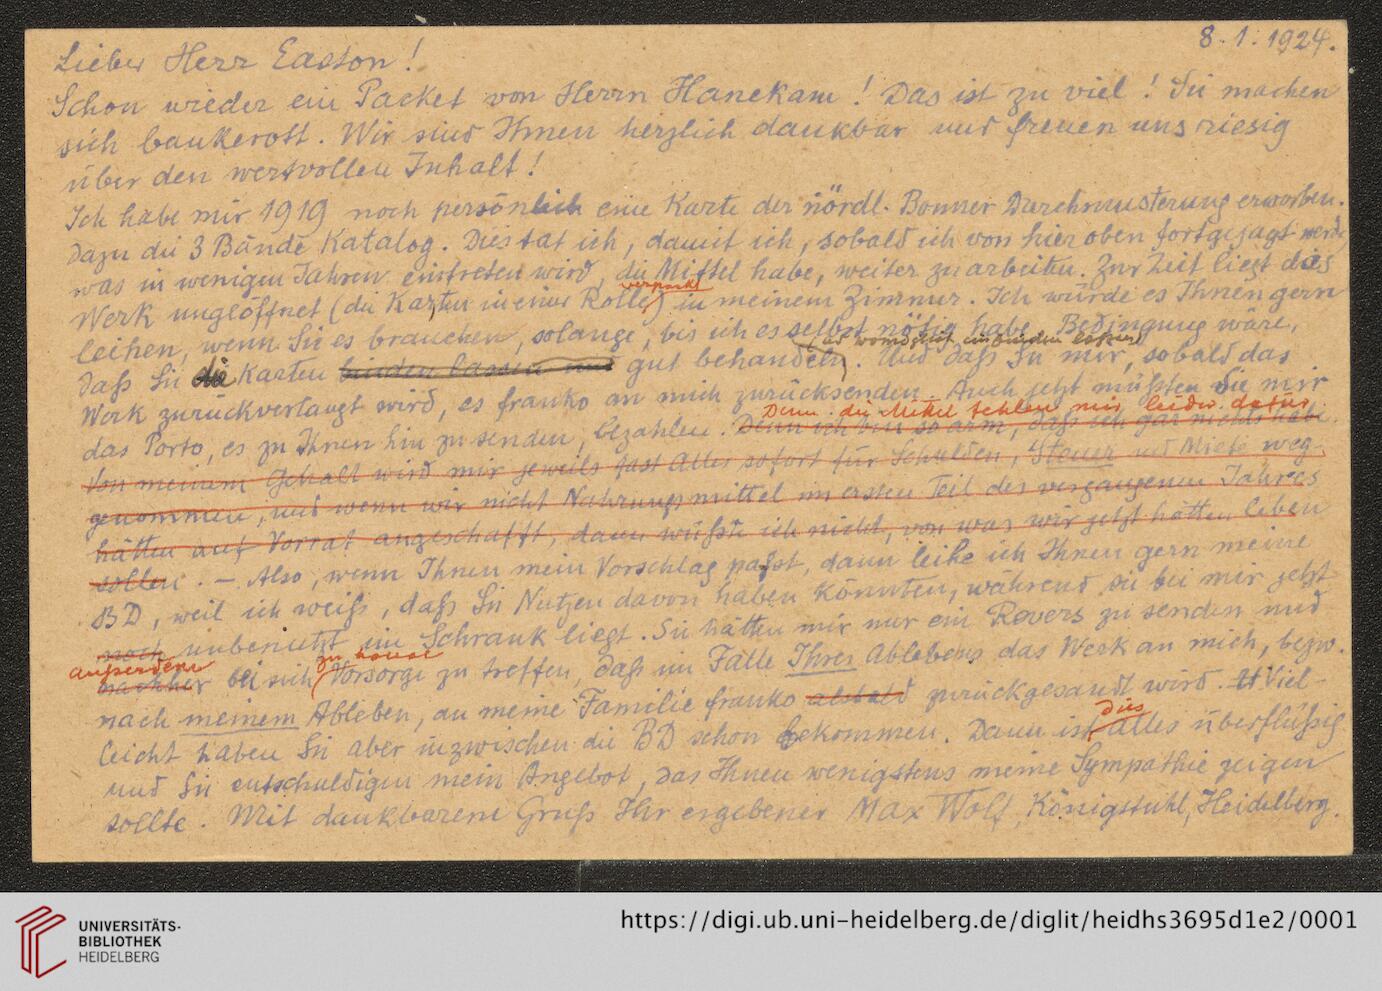 8.1.1924.
Lieber Herr Easton!
Schon wieder ein Packet von Herrn Hanekam! Das ist zu viel! Sie machen
sich bankerott. Wir sind Ihnen herzlich dankbar und freuen uns riesig
über den wertvollen Inhalt!
Ich habe mir 1919 noch persönlich eine Karte der nördl. Bonner Durchmusterung erworben.
Dazu die 3 Bände Katalog. Dies tat ich, damit ich, sobald ich von hier oben fortgejagt werde,
was in wenigen Jahren eintreten wird, die Mittel habe, weiter zu arbeiten. Zur Zeit liegt das
verpackt
Werk ungeöffnet (die Karten in einer Rolle) in meinem Zimmer. Ich würde es Ihnen gern
leihen, wenn Sie es brauchen, solange, bis ich es selbst nötig habe. Bedingung wäre,
(ev womöglich einbinden lassen)
daß Sie die Karten binden lassen und gut behandeln. Und daß Sie mir, sobald das
Werk zurückverlangt wird, es franko an mich zurücksenden. Auch jetzt müßten Sie mir
Denn die Mittel fehlen mir leider dafür.
das Porto, es zu Ihnen hin zu senden, bezahlen. Denn ich bin so arm, daß ich gar nichts habe.
Von meinem Gehalt wird mir jeweils fast Alles sofort für Schulden, Steuer und Miete weg-
genommen, und wenn wir nicht Nahrungsmittel im ersten Teil des vergangenen Jahres
hätten auf Vorrat angeschafft, dann wüßte ich nicht, von was wir jetzt hätten leben
sollen. – Also, wenn Ihnen mein Vorschlag paßt, dann leihe ich Ihnen gern meine
BD, weil ich weiß, daß Sie Nutzen davon haben könnten, während sie bei mir jetzt
noch unbenutzt im Schrank liegt. Sie hätten mir nur ein Revers zu senden und
außerdem zu hause
nachher bei sich Vorsorge zu treffen, daß im Falle Ihres Ablebens das Werk an mich, bezw.
nach meinem Ableben, an meine Familie franko alsbald zurückgesandt wird. Viel-
dies
leicht haben Sie aber inzwischen die BD schon bekommen. Dann ist alles überflüßig
und Sie entschuldigen mein Angebot, das Ihnen wenigstens meine Sympathie zeigen
sollte. Mit dankbarem Gruß Ihr ergebener Max Wolf, Königstuhl, Heidelberg.
UNIVERSITÄTS-
BIBLIOTHEK
HEIDELBERG
https://digi.ub.uni-heidelberg.de/diglit/heidhs3695d1e2/0001